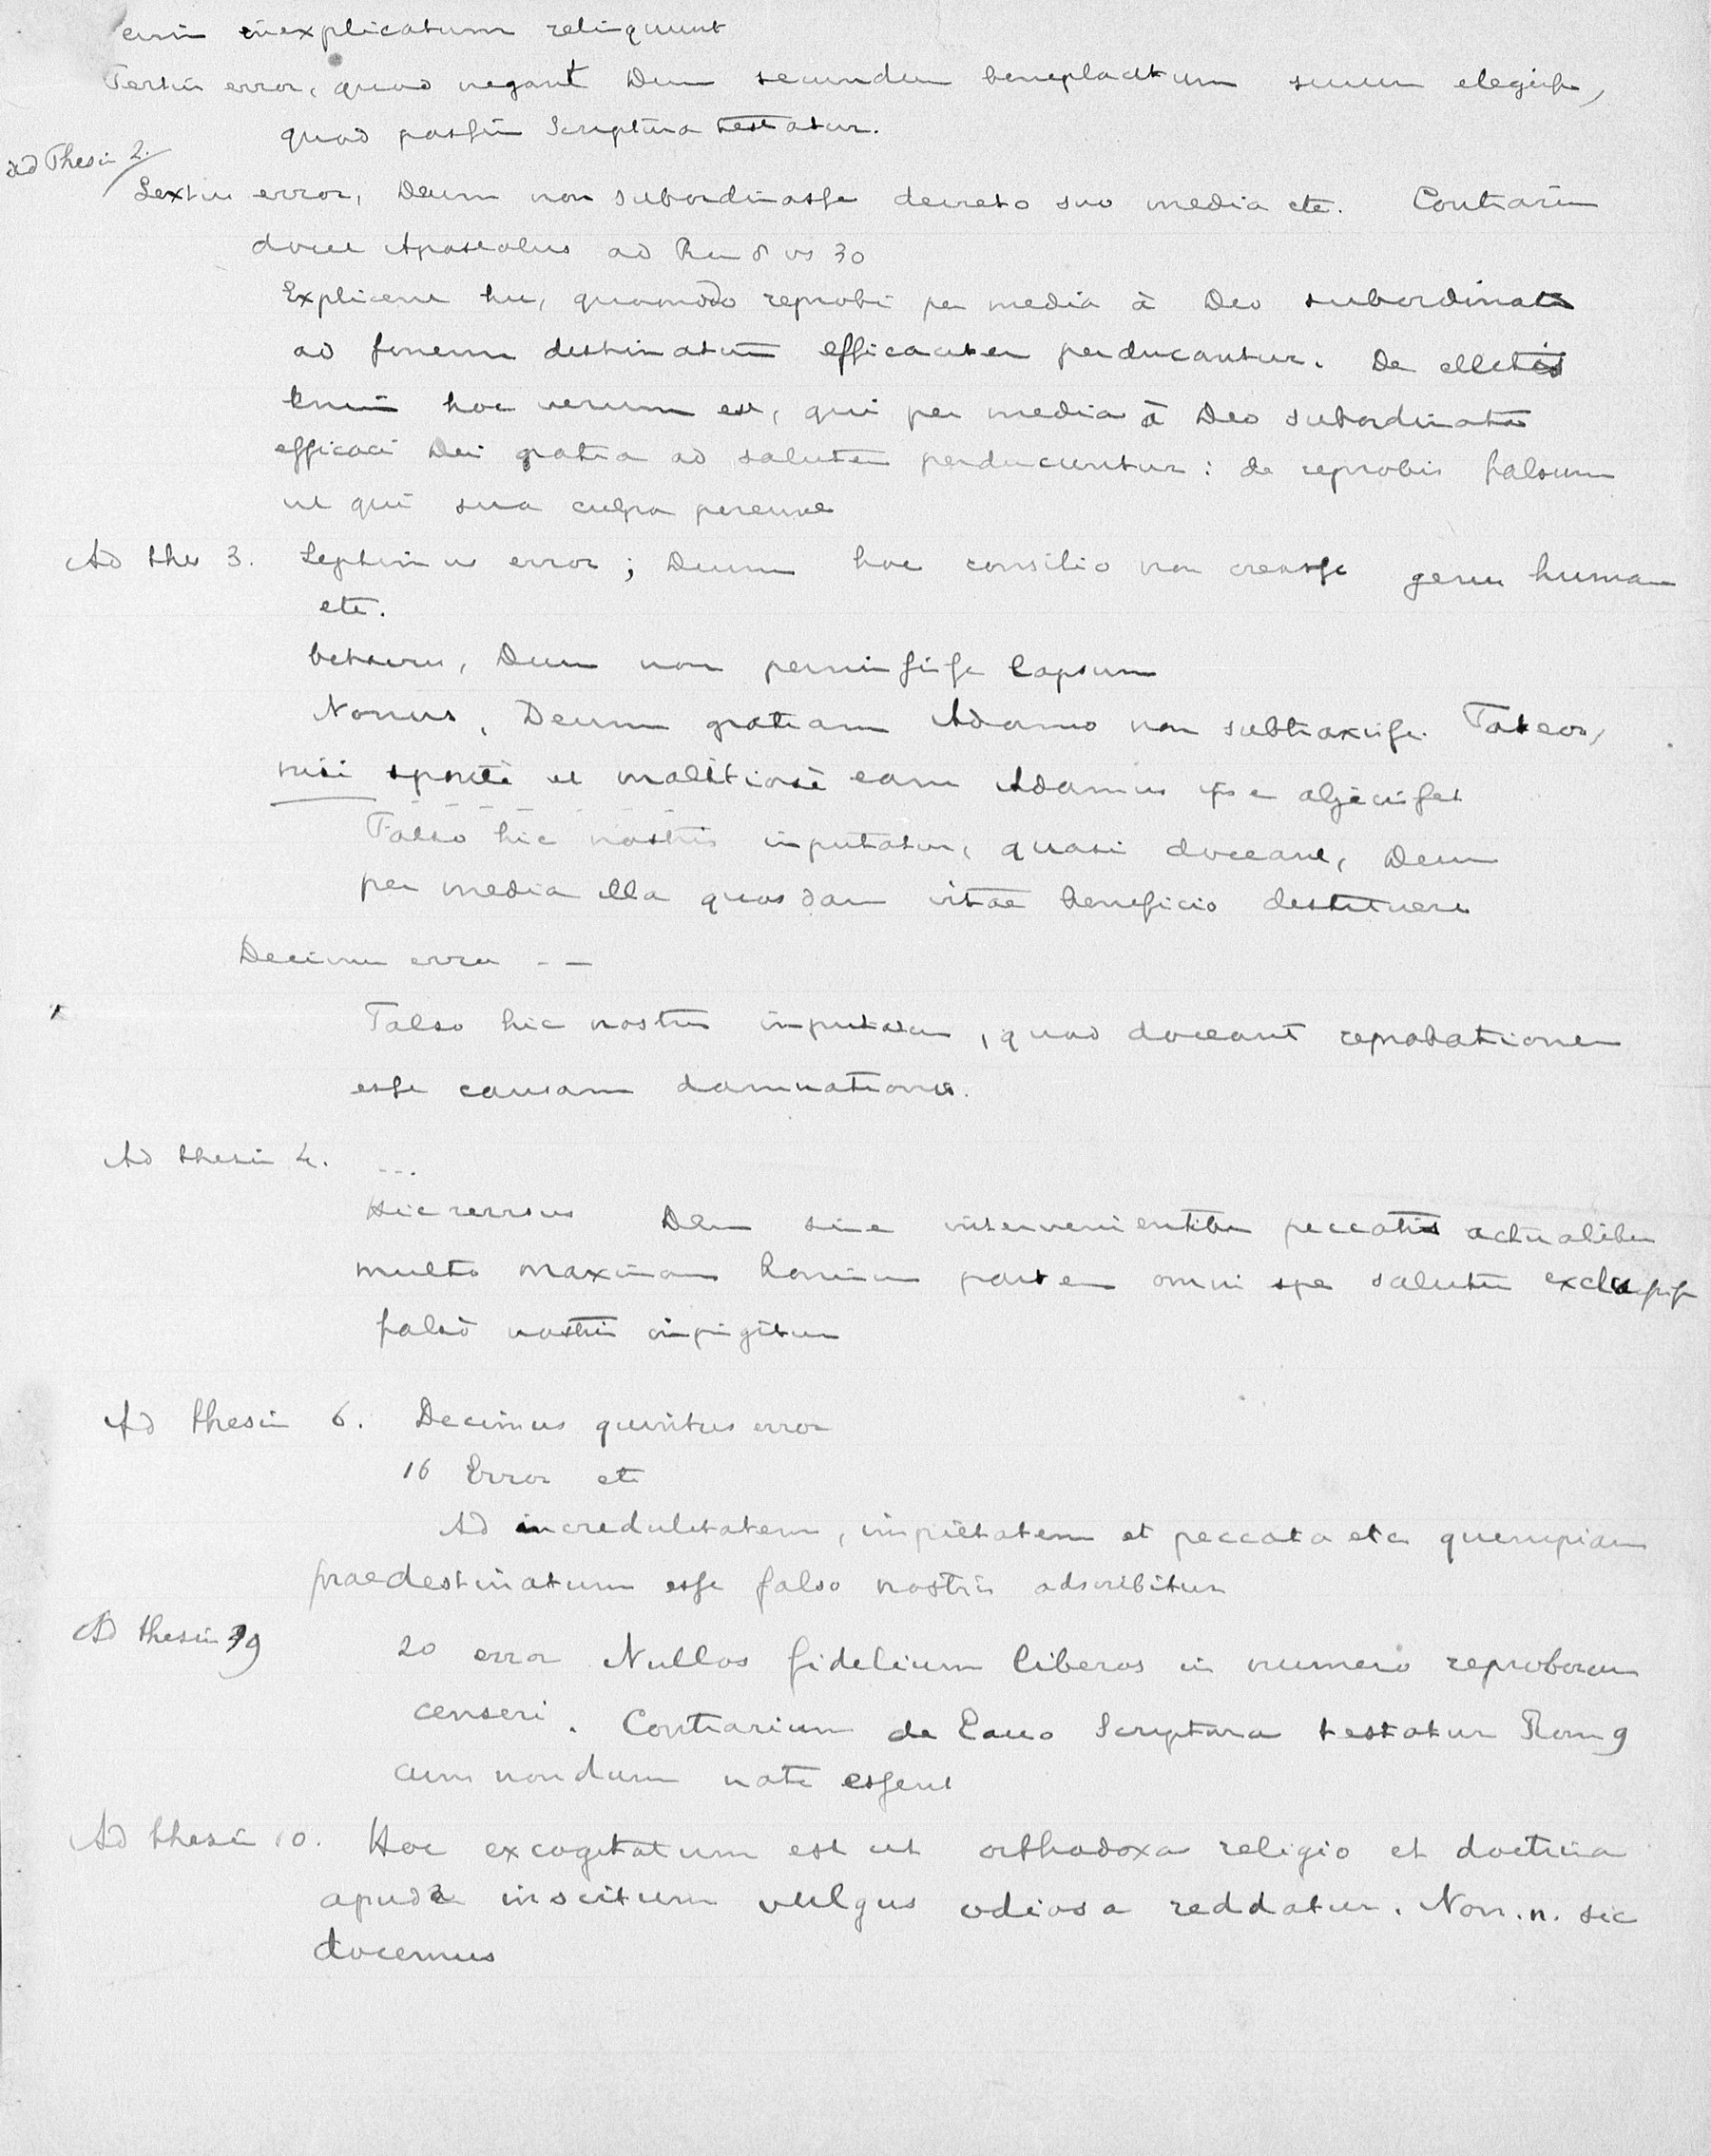 enim inexplicatum relinquunt
Tertius error, quod negant Deum secundum beneplacitum suum elegisse,
quod passim Scriptura testatur.
Ad Thesin 2.
Sextus error, Deum non subordinasse decreto suo media etc. Contrarium
docet Apostolus ad Rm 8 vs 30
Explicent hii, quomodo reprobi per media à Deo subordinata
ad finem destinatum efficaciter perducantur. De electis
enim hoc verum est, qui per media à Deo subordinata
efficaci Dei gratia ad salutem perducuntur: de reprobis falsum
ut qui sua culpa pereunt
Ad thes 3. Septimus error; Deum hoc consilio non creasse genus human
etc.
Octavus, Deum non permisisse lapsum
Nonus, Deum gratiam Adamo non subtraxisse. Fateor,
nisi spontè et malitiosè eam Adamus ipse abjecisset
Falso hic nostris imputatur, quasi doceant, Deum
per media illa quosdam vitae beneficio destituere
Decimus error - -
Falso hic nostris imputatur, quod doceant reprobationem
esse causam damnationis.
Ad thesin 4. ...
Hic rursus Deum sine intervenientibus peccatis actualibus
multo maximam hominum partem omni spe salutis exclusisse
falsò nostris impigitur
Ad thesin 6. Decimus quintus error
16 Error etc
Ad incredulitatem, impietatem et peccata etc quempiam
praedestinatum esse falso nostris adscribitur
Ad thesin 9
20 error Nullos fidelium liberos in numero reproborum
censeri. Contrarium de Esauo Scriptura testatur Rom 9
cum nondum nati essent
Ad thesin 10. Hoc excogitatum est ut orthodoxa religio et doctrina
apud inscitum vulgus odiosa reddatur. Non. n. sic
docemus